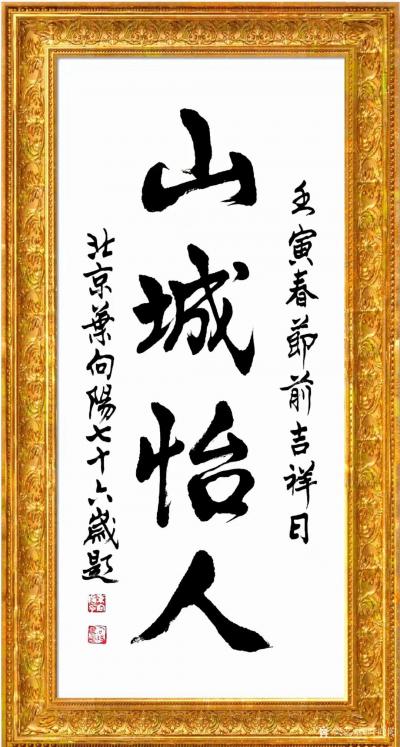 壬寅春節前吉祥日
山城怡人
北京葉向陽七十六歲題